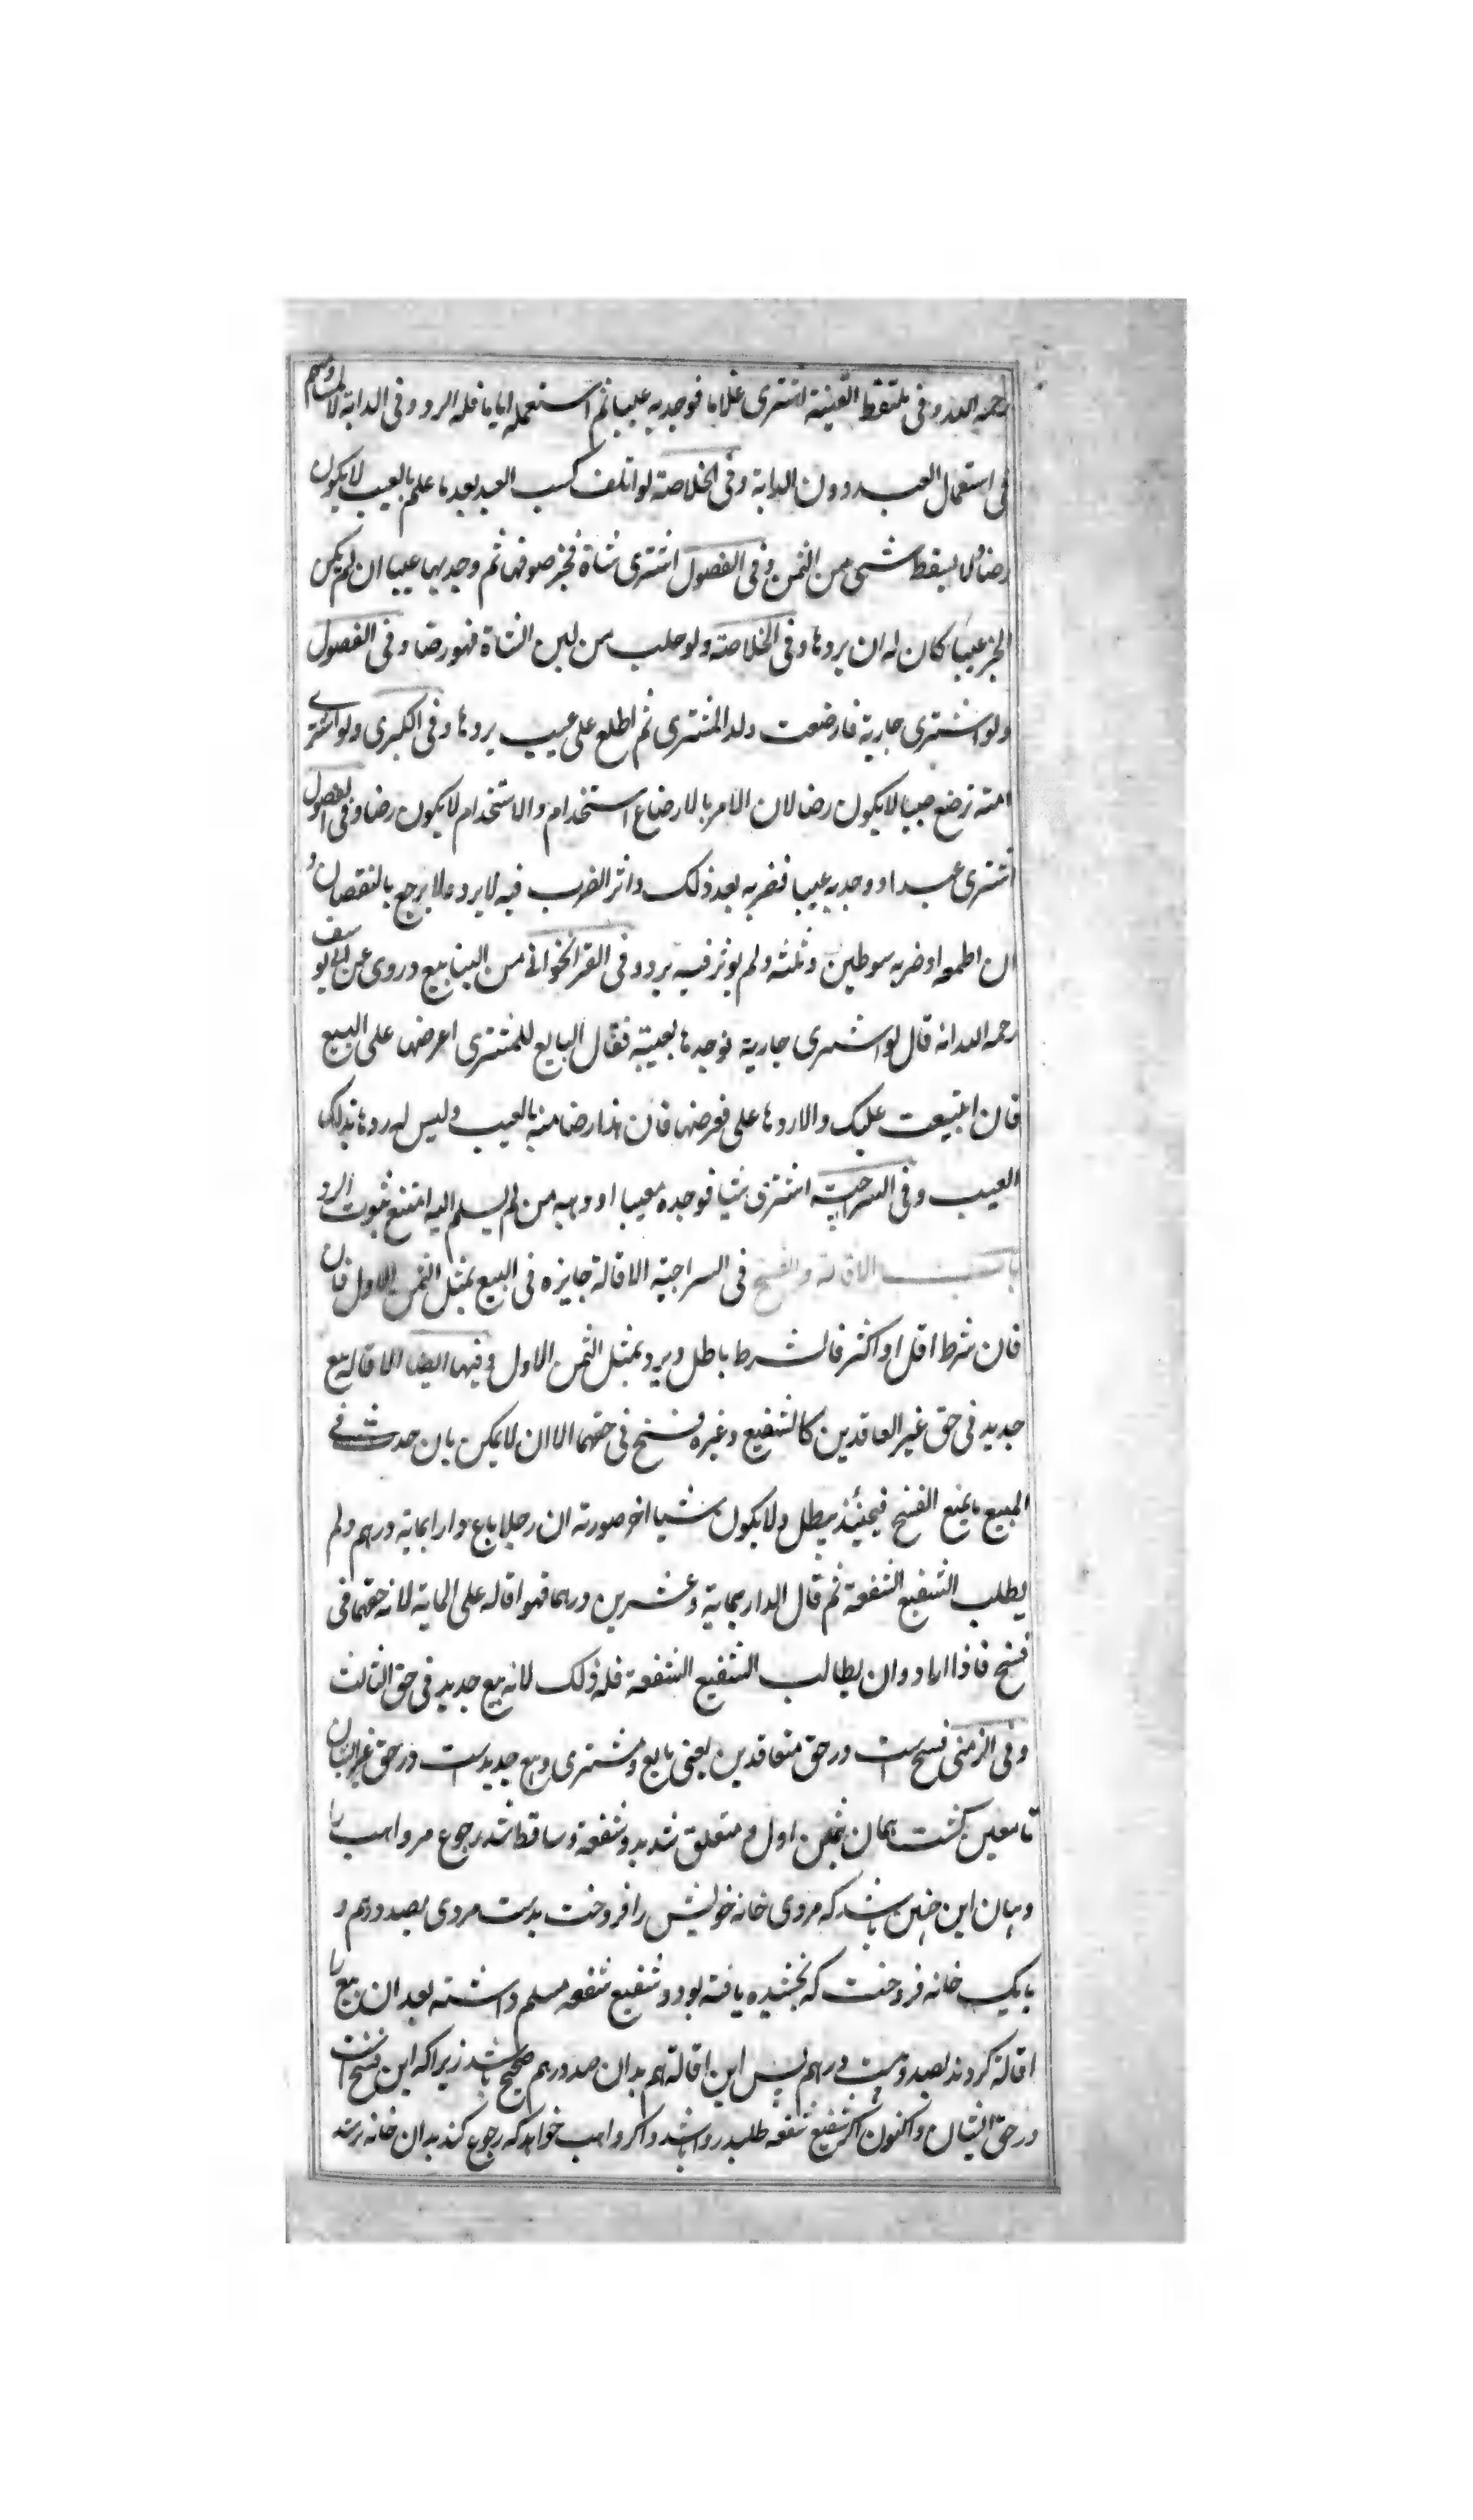 رحمه الله وفى ملتقط القنية اشترى غلاما فوجد به عيبا ثم استعمله اياما فله الرد وفى الدابة لا
فى استعمال العبد دون الدابة وفى الخلاصة لو اتلف كسب العبد بعد ما علم بالعيب لا يكون
رضا ولا يسقط شىء من الثمن وفى الفصول اشترى شاة فجز صوفها ثم وجد بها عيبا ان لم يكن
الجز عيبا كان له ان يردها وفى الخلاصة ولو حلب من لبن الشاة فهو رضا وفى الفصول
ولو اشترى جارية فارضعت ولد المشترى ثم اطلع على عيب يردها وفى الكبرى ولو اشترى
امته ترضع صبيا لا يكون رضا لان الامر بالارضاع استخدام والاستخدام لا يكون رضا وفى الفصول
اشترى عبدا ووجد به عيبا فضربه بعد ذلك واثر الضرب فيه لا يرد ولا يرجع بالنقصان و
ان لطمه او ضربه سوطين وثلثه ولم يوثر فيه يرد وفى القراخوانى من الينابيع وروى عن ابى يوسف
رحمه الله انه قال لو اشترى جارية فوجدها بعيبة فقال البايع للمشترى اعرضها على البيع
فان ابتيعت عليك والا ردها على فعرضها فان هذا رضا منه بالعيب وليس له ردها بذلك
العيب وفى السراجية اشترى شيا فوجده معيبا او وهبه من لم يسلم اليه امتنع ثبوت الرد
باب الاقالة والفسخ فى السراجية الاقالة جايزه فى البيع بمثل الثمن الاول فان
فان شرط اقل او اكثر فالشرط باطل ويرد بمثل الثمن الاول وفيها ايضا الاقاله بيع
جديد فى حق غير العاقدين كالشفيع وغيره فسخ فى حقهما الا ان لا يمكن بان حدث فى
المبيع ما يمنع الفسخ فحينئذ يبطل ولا يكون شيا اخر صورته ان رجلا باع دارا بمايه درهم ولم
يطلب الشفيع الشفعة ثم قال الدار بمايه وعشرين درهما فهو اقاله على المايه لانه حقهما فى
فسخ فاذا ارادوا ان يطالب الشفيع الشفعة فله ذلك لانه بيع جديد فى حق الثالث
وفى فسخ است در حق متعاقدين يعنى بايع ومشترى وبيع جديدست در حق غير ايشان
تا معين كشت همان ثمن اول و متعلق شد بدو شفعة وساقط شد رجوع مر واهب را
وبيان اين چنين باشد كه مردى خانه خويش را فروخت بدست مردى بصد درم و
يا يك خانه فروخت كه بخشيده يافته بود و شفيع شفعه مسلم داشته بعد ان بيع را
اقالة كردند بصد وبيست درهم پس اين اقالة هم بدان صد درهم صحيح باشد زيراكه اين فسخ است
در حق ايشان واكنون اكر شفيع شفعه طلبد روا باشد واكر واهب خواهد كه رجوع كند بدان خانه